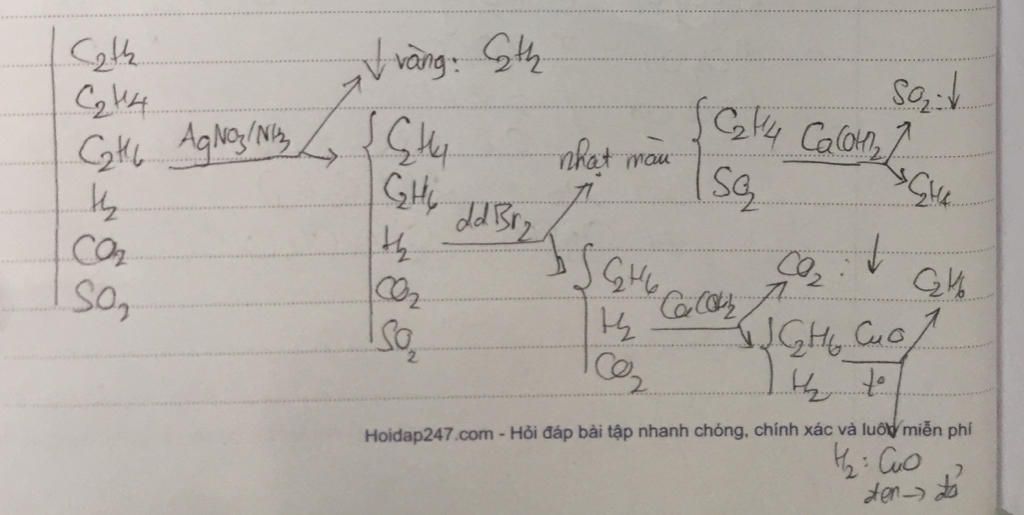 C2H2
C2H4
C2H6
H2
CO2
SO2
AgNO3/NH3
↓ vàng: C2H2
C2H4
C2H6
H2
CO2
SO2
ddBr2
nhạt màu
C2H4
SO2
Ca(OH)2
SO2: ↓
C2H4
C2H6
H2
CO2
Ca(OH)2
CO2: ↓
C2H6
H2
CuO
t°
C2H6
H2: CuO
đen → đỏ
Hoidap247.com - Hỏi đáp bài tập nhanh chóng, chính xác và luôn miễn phí